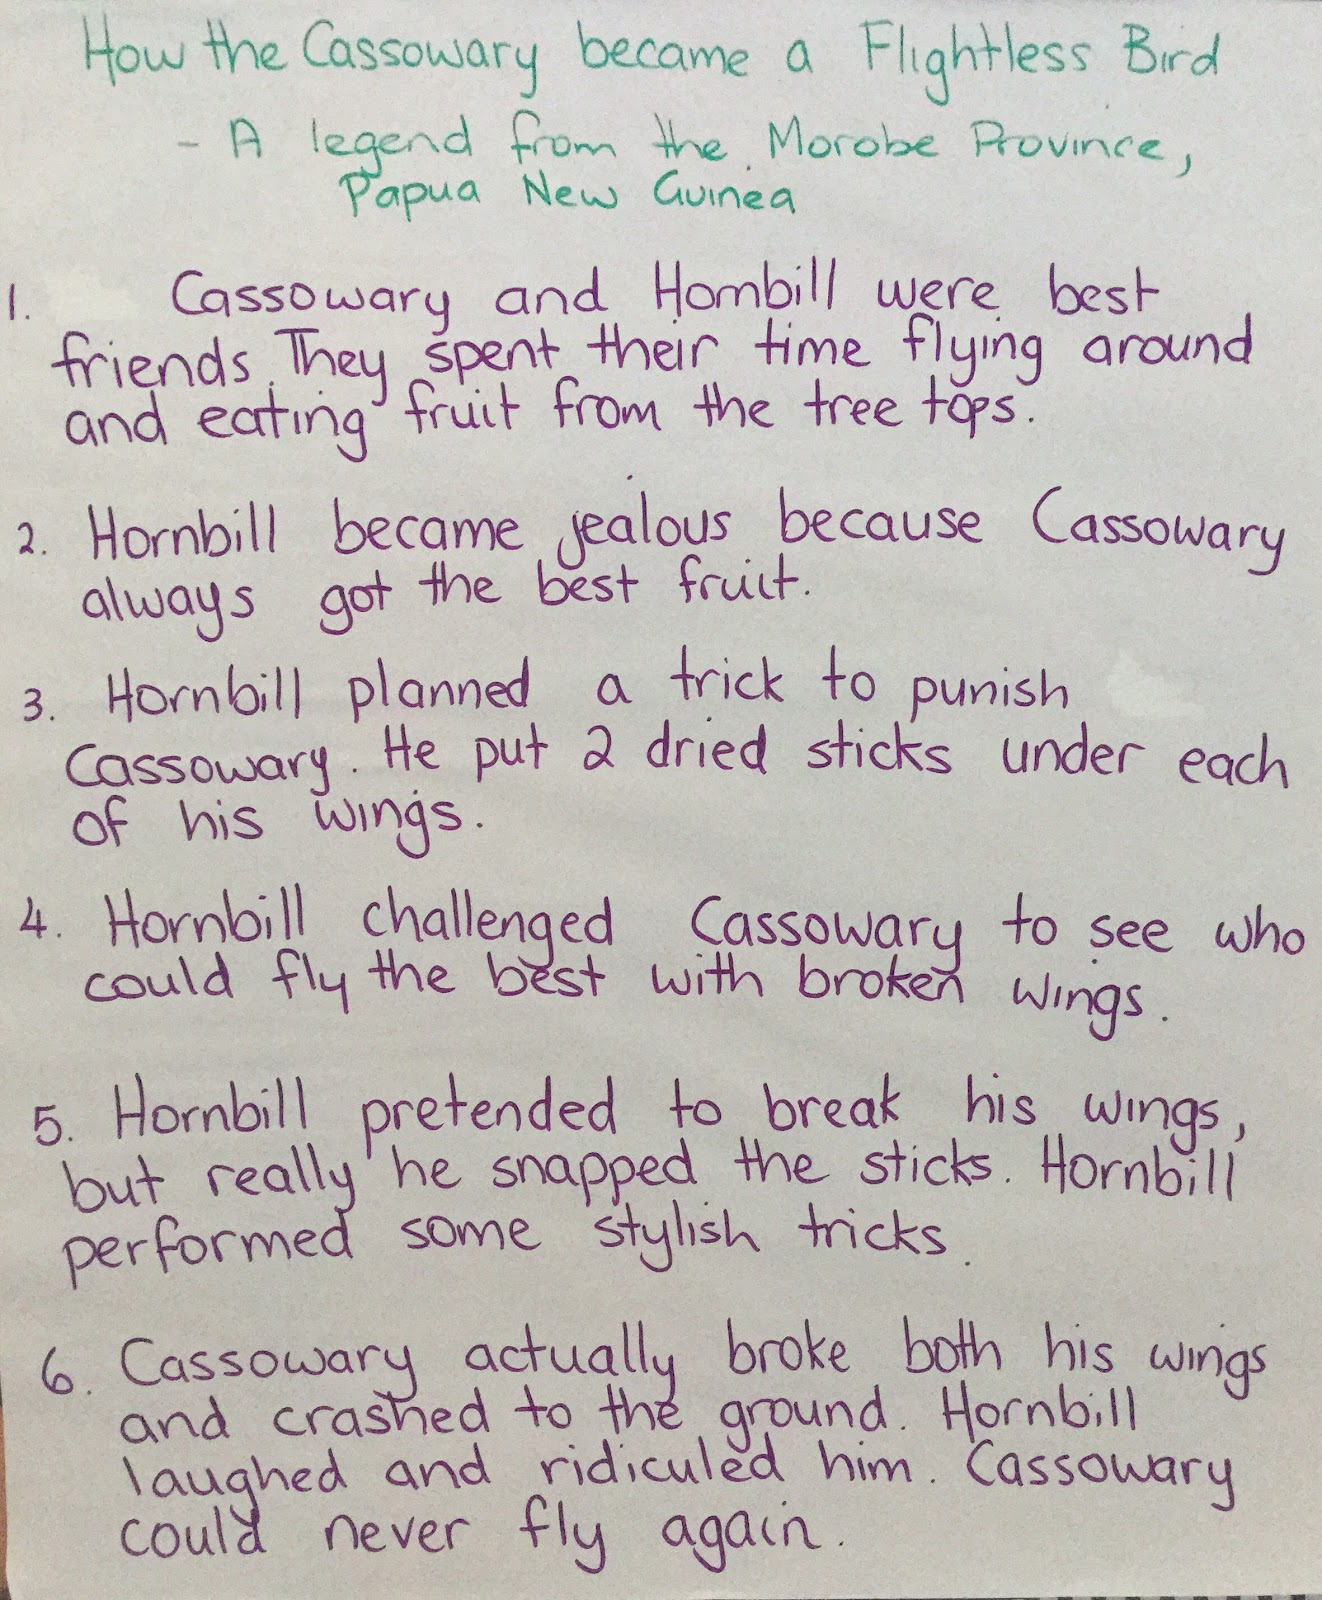 How the Cassowary became a Flightless Bird
- A legend from the Morobe Province,
Papua New Guinea
1. Cassowary and Hornbill were best
friends. They spent their time flying around
and eating fruit from the tree tops.
2. Hornbill became jealous because Cassowary
always got the best fruit.
3. Hornbill planned a trick to punish
Cassowary. He put 2 dried sticks under each
of his wings.
4. Hornbill challenged Cassowary to see who
could fly the best with broken wings.
5. Hornbill pretended to break his wings,
but really he snapped the sticks. Hornbill
performed some stylish tricks.
6. Cassowary actually broke both his wings
and crashed to the ground. Hornbill
laughed and ridiculed him. Cassowary
could never fly again.